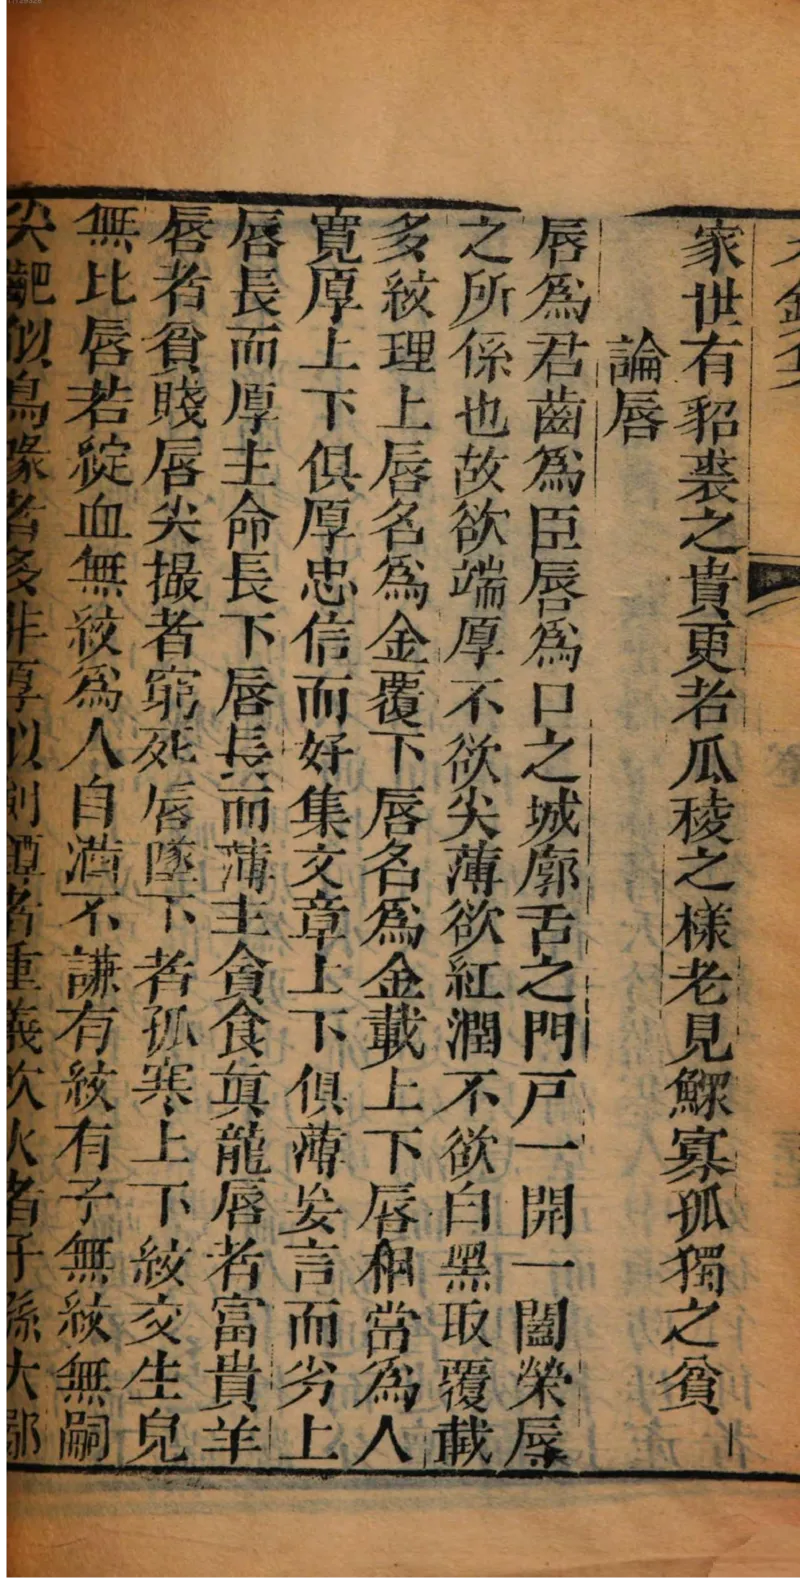 家世有貂裘之貴更若瓜稜之樣老見鰥寡孤獨之貧
論唇
唇爲君齒爲臣唇爲口之城廓舌之門戸一開一闔榮辱
之所係也故欲端厚不欲尖薄欲紅潤不欲白黑取覆載
多紋理上唇名爲金覆下唇名爲金載上下唇相當爲人
寛厚上下俱厚忠信而好集文章上下俱薄妄言而劣上
唇長而厚主命長下唇長而薄主貪食真龍唇者富貴羊
唇者貧賤唇尖撮者窮死唇墜下者孤寒上下紋交生皃
無比唇若綻血無紋爲人自滿不謙有紋有子無紋無嗣
尖 似鳥喙者多非厚似 者重義吹火者子孫大